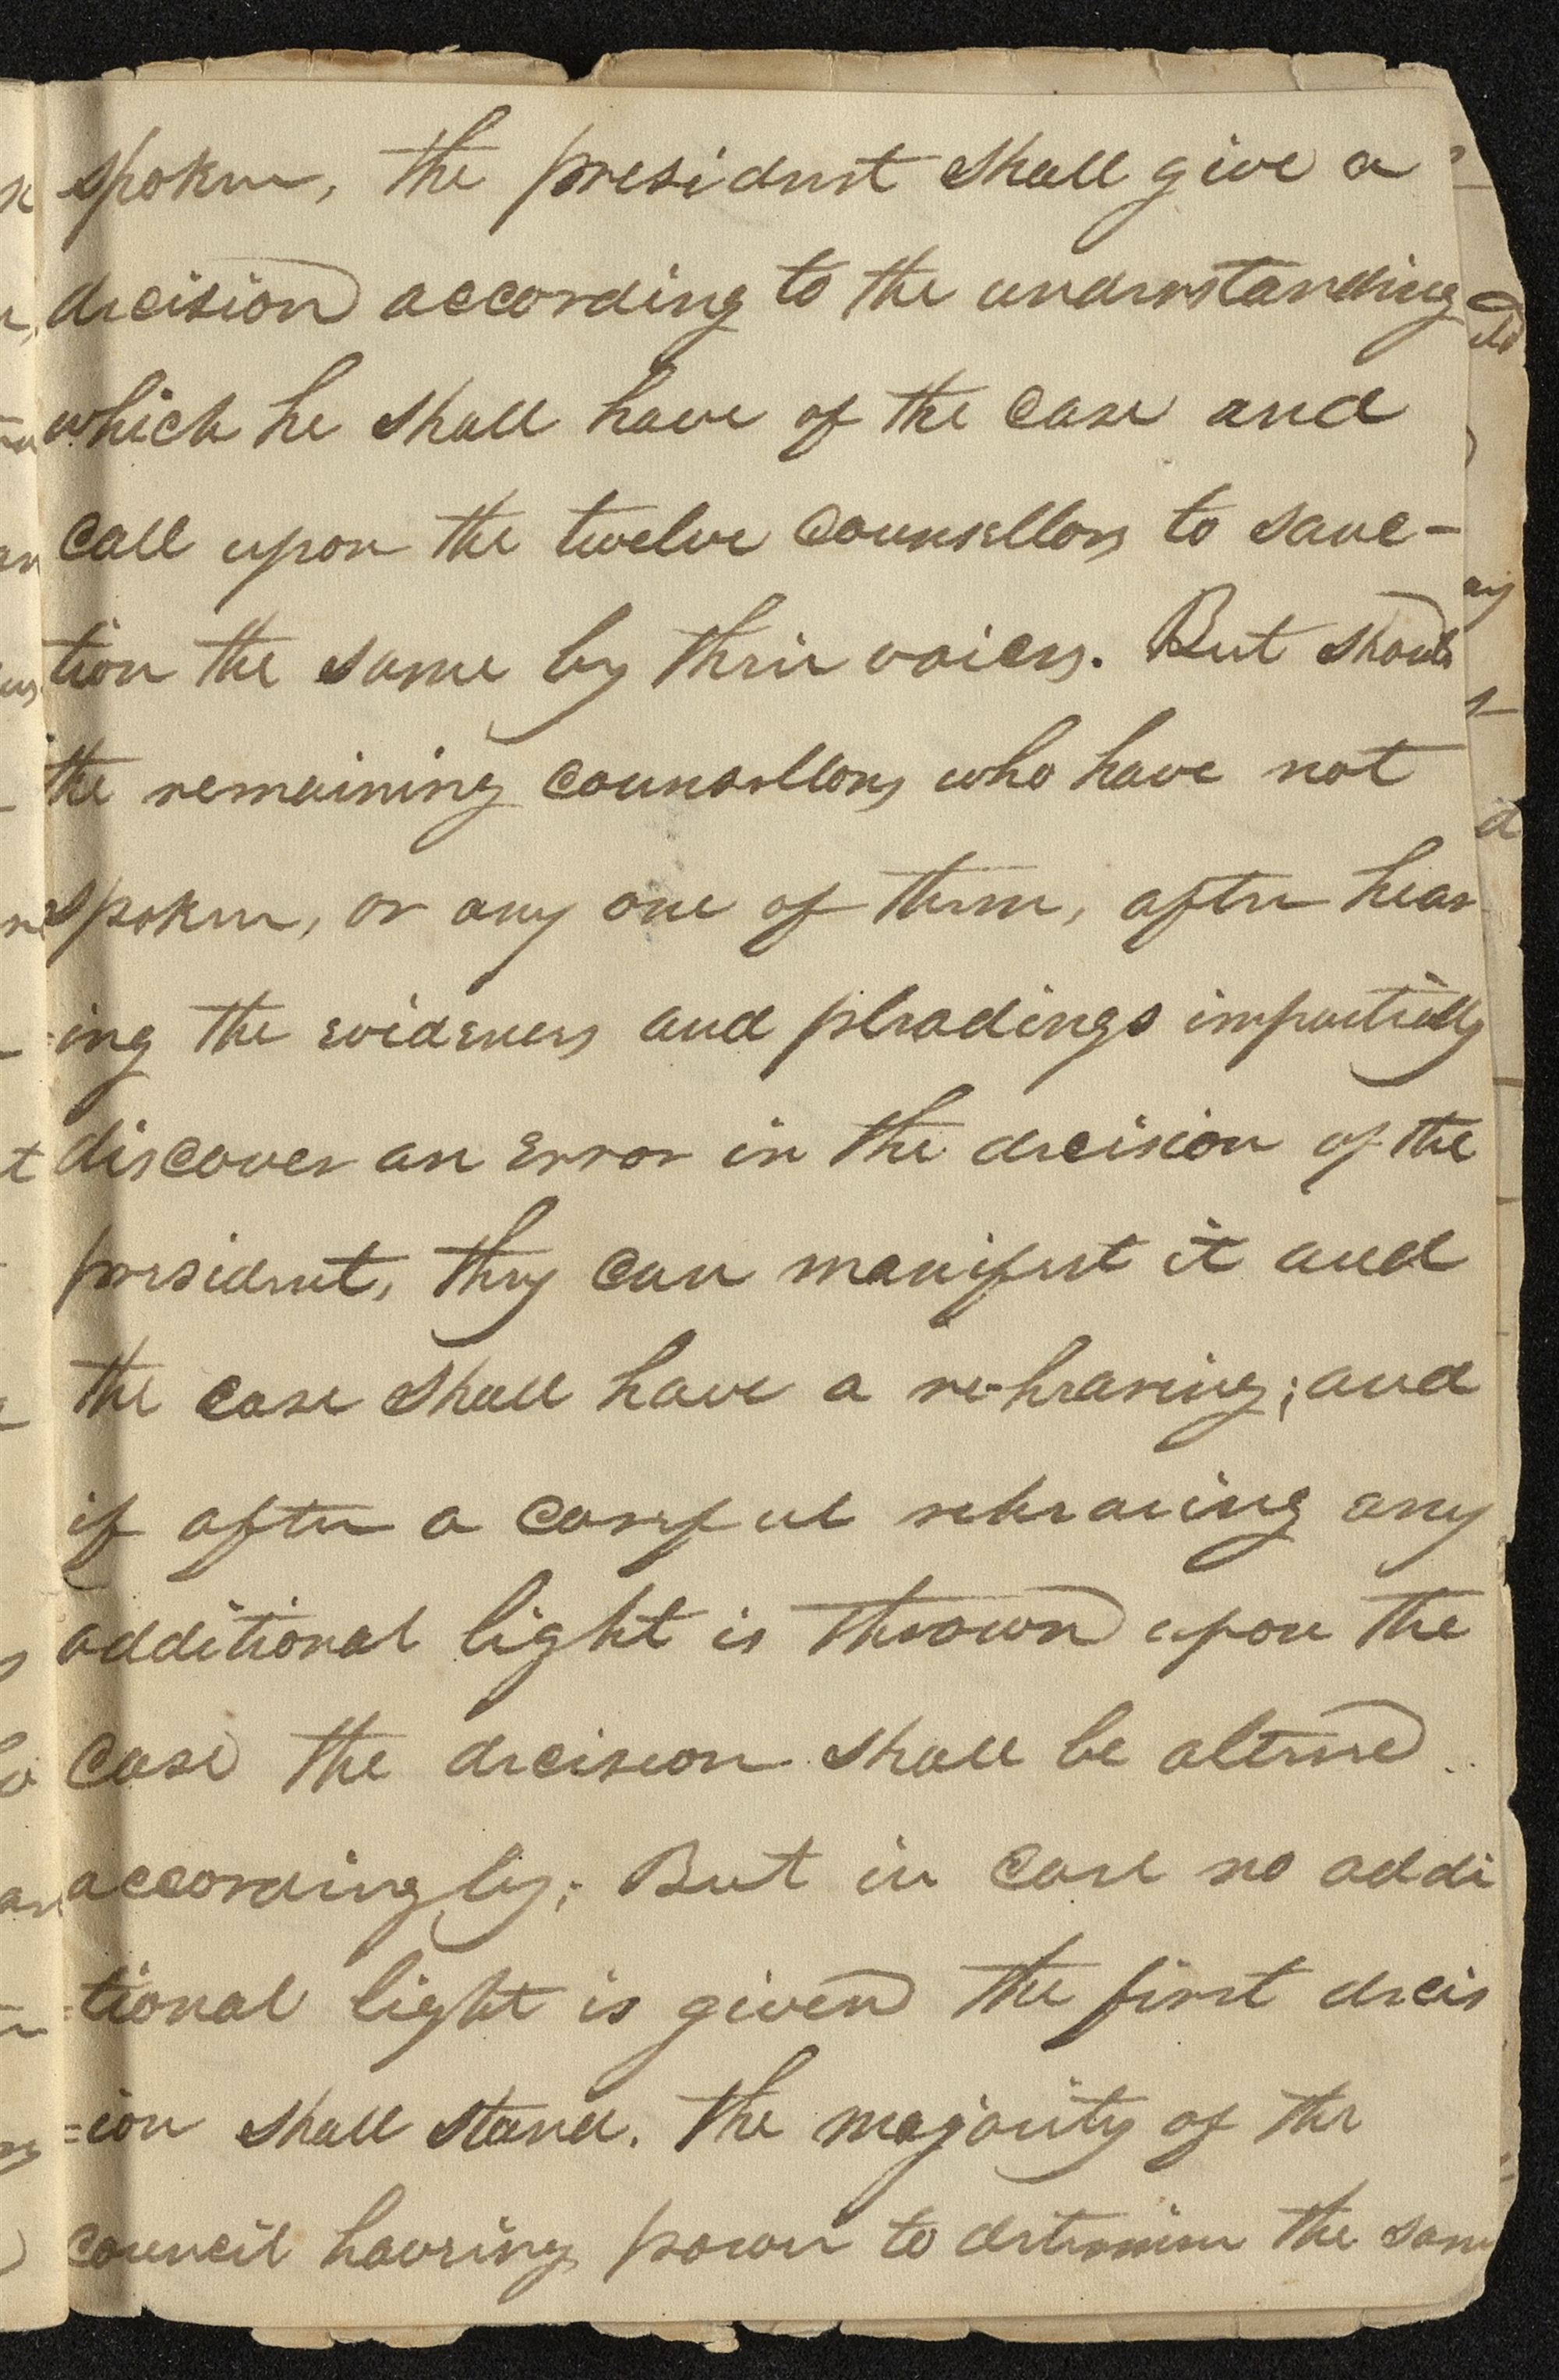 spoken, the president shall give a
decision according to the understanding
which he shall have of the case and
call upon the twelve counsellors to sanc-
tion the same by their voices. But should
the remaining counsellors who have not
spoken, or any one of them, after hear
=ing the evidences and pleadings impartially
discover an error in the decision of the
president, they can manifest it and
the case shall have a re-hearing; and
if after a careful rehearing any
additional light is thrown upon the
case the decision shall be altered
accordingly; But in case no addi
=tional light is given the first decis
=ion shall stand. The majority of the
council having power to determine the same